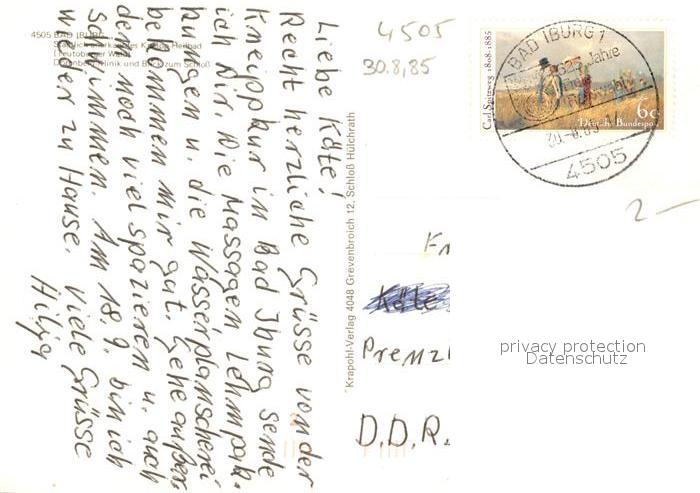 Liebe Käte!
Recht herzliche Grüsse von der
Kneippkur in Bad Iburg sende
ich Dir. Die Massagen Lehmpak-
kungen u. die Wasserplanscherei
bekommen mir gut. Gehe außer-
dem noch viel spazieren u. auch
schwimmen. Am 18.9. bin ich
wieder zu Hause. Viele Grüsse
4505 BAD IBURG
Krapohl-Verlag 4048 Grevenbroich 12, Schloß Hülchrath
4505
30.8.85
Carl Spitzweg 1808-1885
60
Deutsche Bundespost
BAD IBURG 1
Jahre
4505
2-
Käte
Prenzl
D.D.R.
privacy protection
Datenschutz